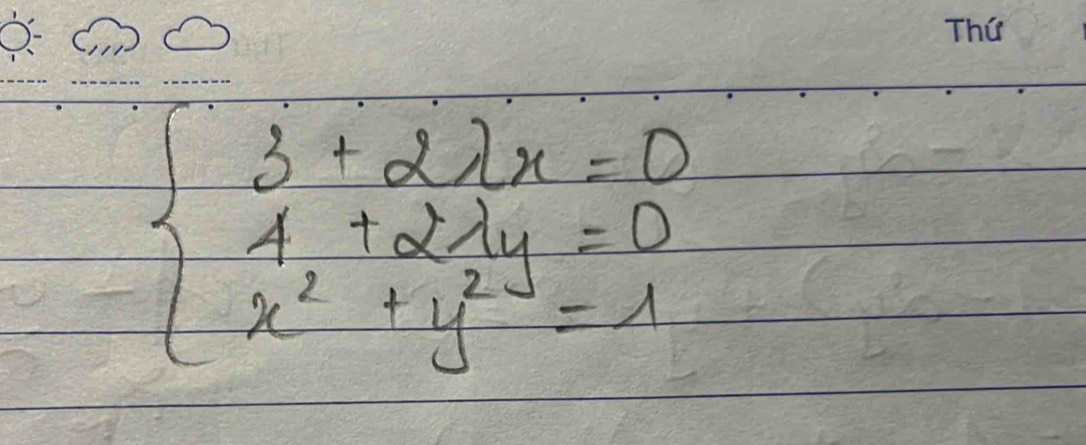 Thứ
3 + 2λx = 0
4 + 2λy = 0
x² + y² = 1